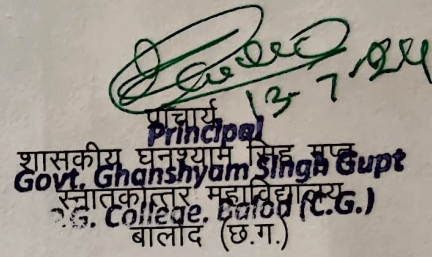 13-7-24
प्राचार्य
Principal
शासकीय घनश्याम सिंह गुप्त
Govt. Ghanshyam Singh Gupt
स्नातकोत्तर महाविद्यालय
P.G. College, Balod (C.G.)
बालोद (छ.ग.)